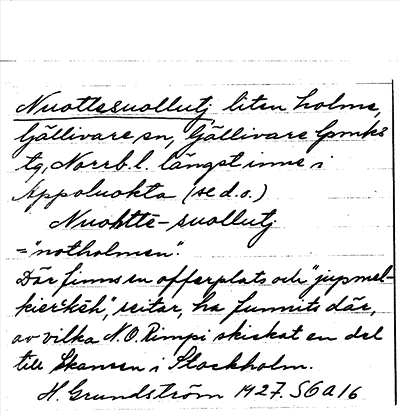 Nuottesuollutj liten holme,
Gällivare sn, Gällivare lpmks
tg, Norrb. l. längst inne i
Appoluokta (se d.o.)
Nuohtte-suollutj
="notholmen".
Där finns en offerplats och "jupmel-
kierkeh", seitar, ha funnits där,
av vilka N.O. Rimpi skickat en del
till Skansen i Stockholm.
H. Grundström 1927. S6a16